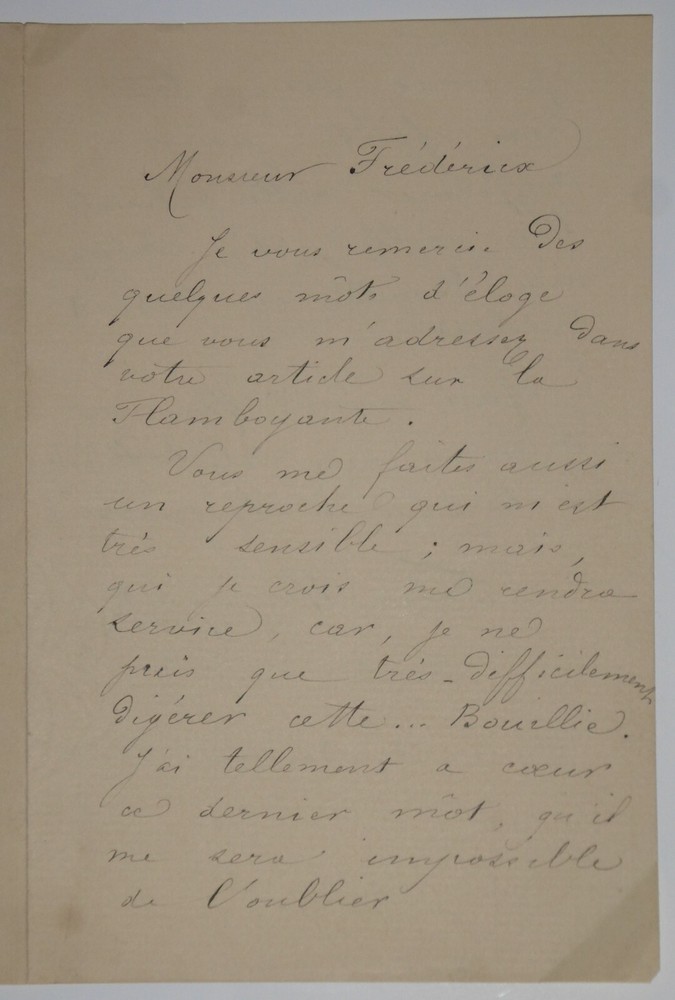 Monsieur Frédérix
Je vous remercie des
quelques môts d'éloge
que vous m'adressez dans
votre article sur la
Flamboyante.
Vous me faites aussi
un reproche qui m'est
très sensible ; mais,
qui je crois me rendra
service, car, je ne
puis que très-difficilement
digérer cette... Bouillie.
J'ai tellement a cœur
ce dernier môt, qu'il
me sera impossible
de l'oublier